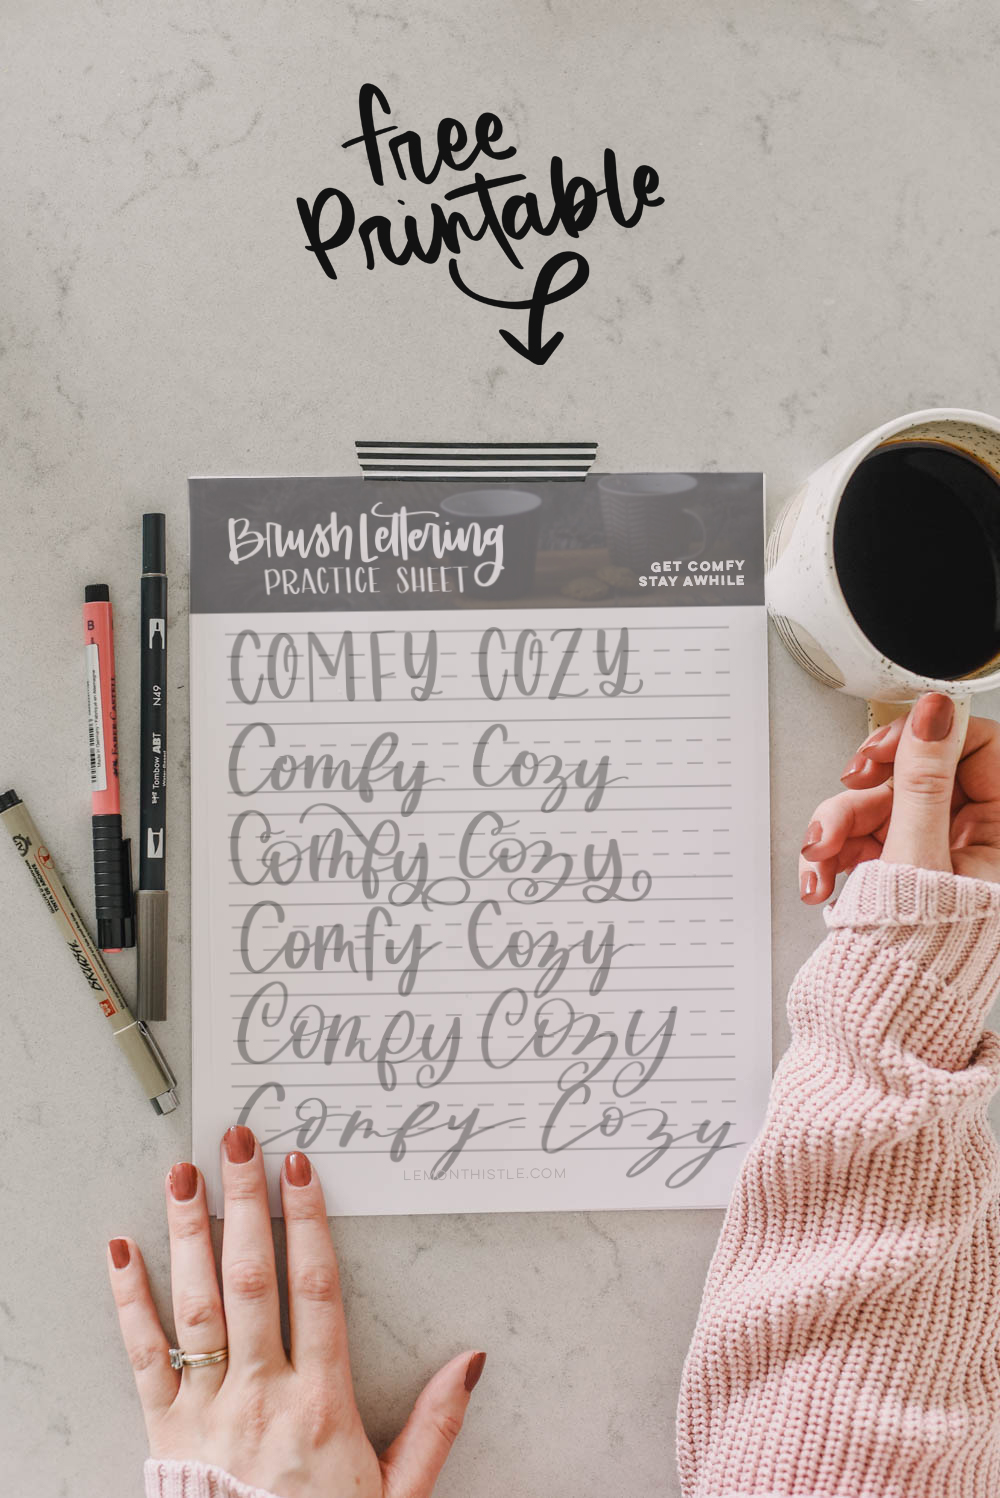 free
Printable
Brush Lettering
PRACTICE SHEET
GET COMFY
STAY AWHILE
COMFY COZY
Comfy Cozy
Comfy Cozy
Comfy Cozy
Comfy Cozy
Comfy Cozy
LEMONTHISTLE.COM
B
FABER-CASTELL
N49
Tombow ABT